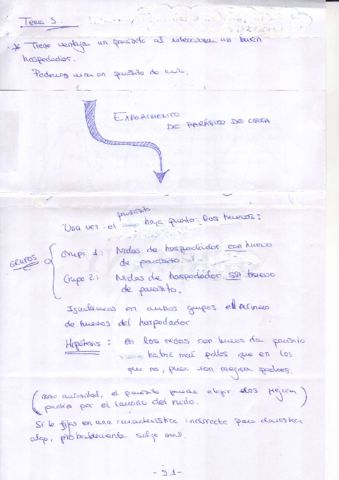 Tema 5:
* Tiene ventajas un parásito al seleccionar un buen
hospedador.
Podemos usar un parásito de cría.
EXPERIMENTO
DE PARÁSITO DE CRÍA
parásito
Una vez el haya puesto los huevos:
GRUPOS
Grupo 1: Nidos de hospedador con huevo
de parásito.
Grupo 2: Nidos de hospedador sin huevo
de parásito.
Igualamos en ambos grupos el número
de huevos del hospedador
Hipótesis: En los nidos con huevos de parásito
habrá más pollos que en los
que no, pues son mejores padres.
(como curiosidad, el parásito puede elegir a los mejores
padres por el tamaño del nido.)
Si te fijas en una característica indirecta para demostrar
algo, probablemente salga mal.
- 5.1 -